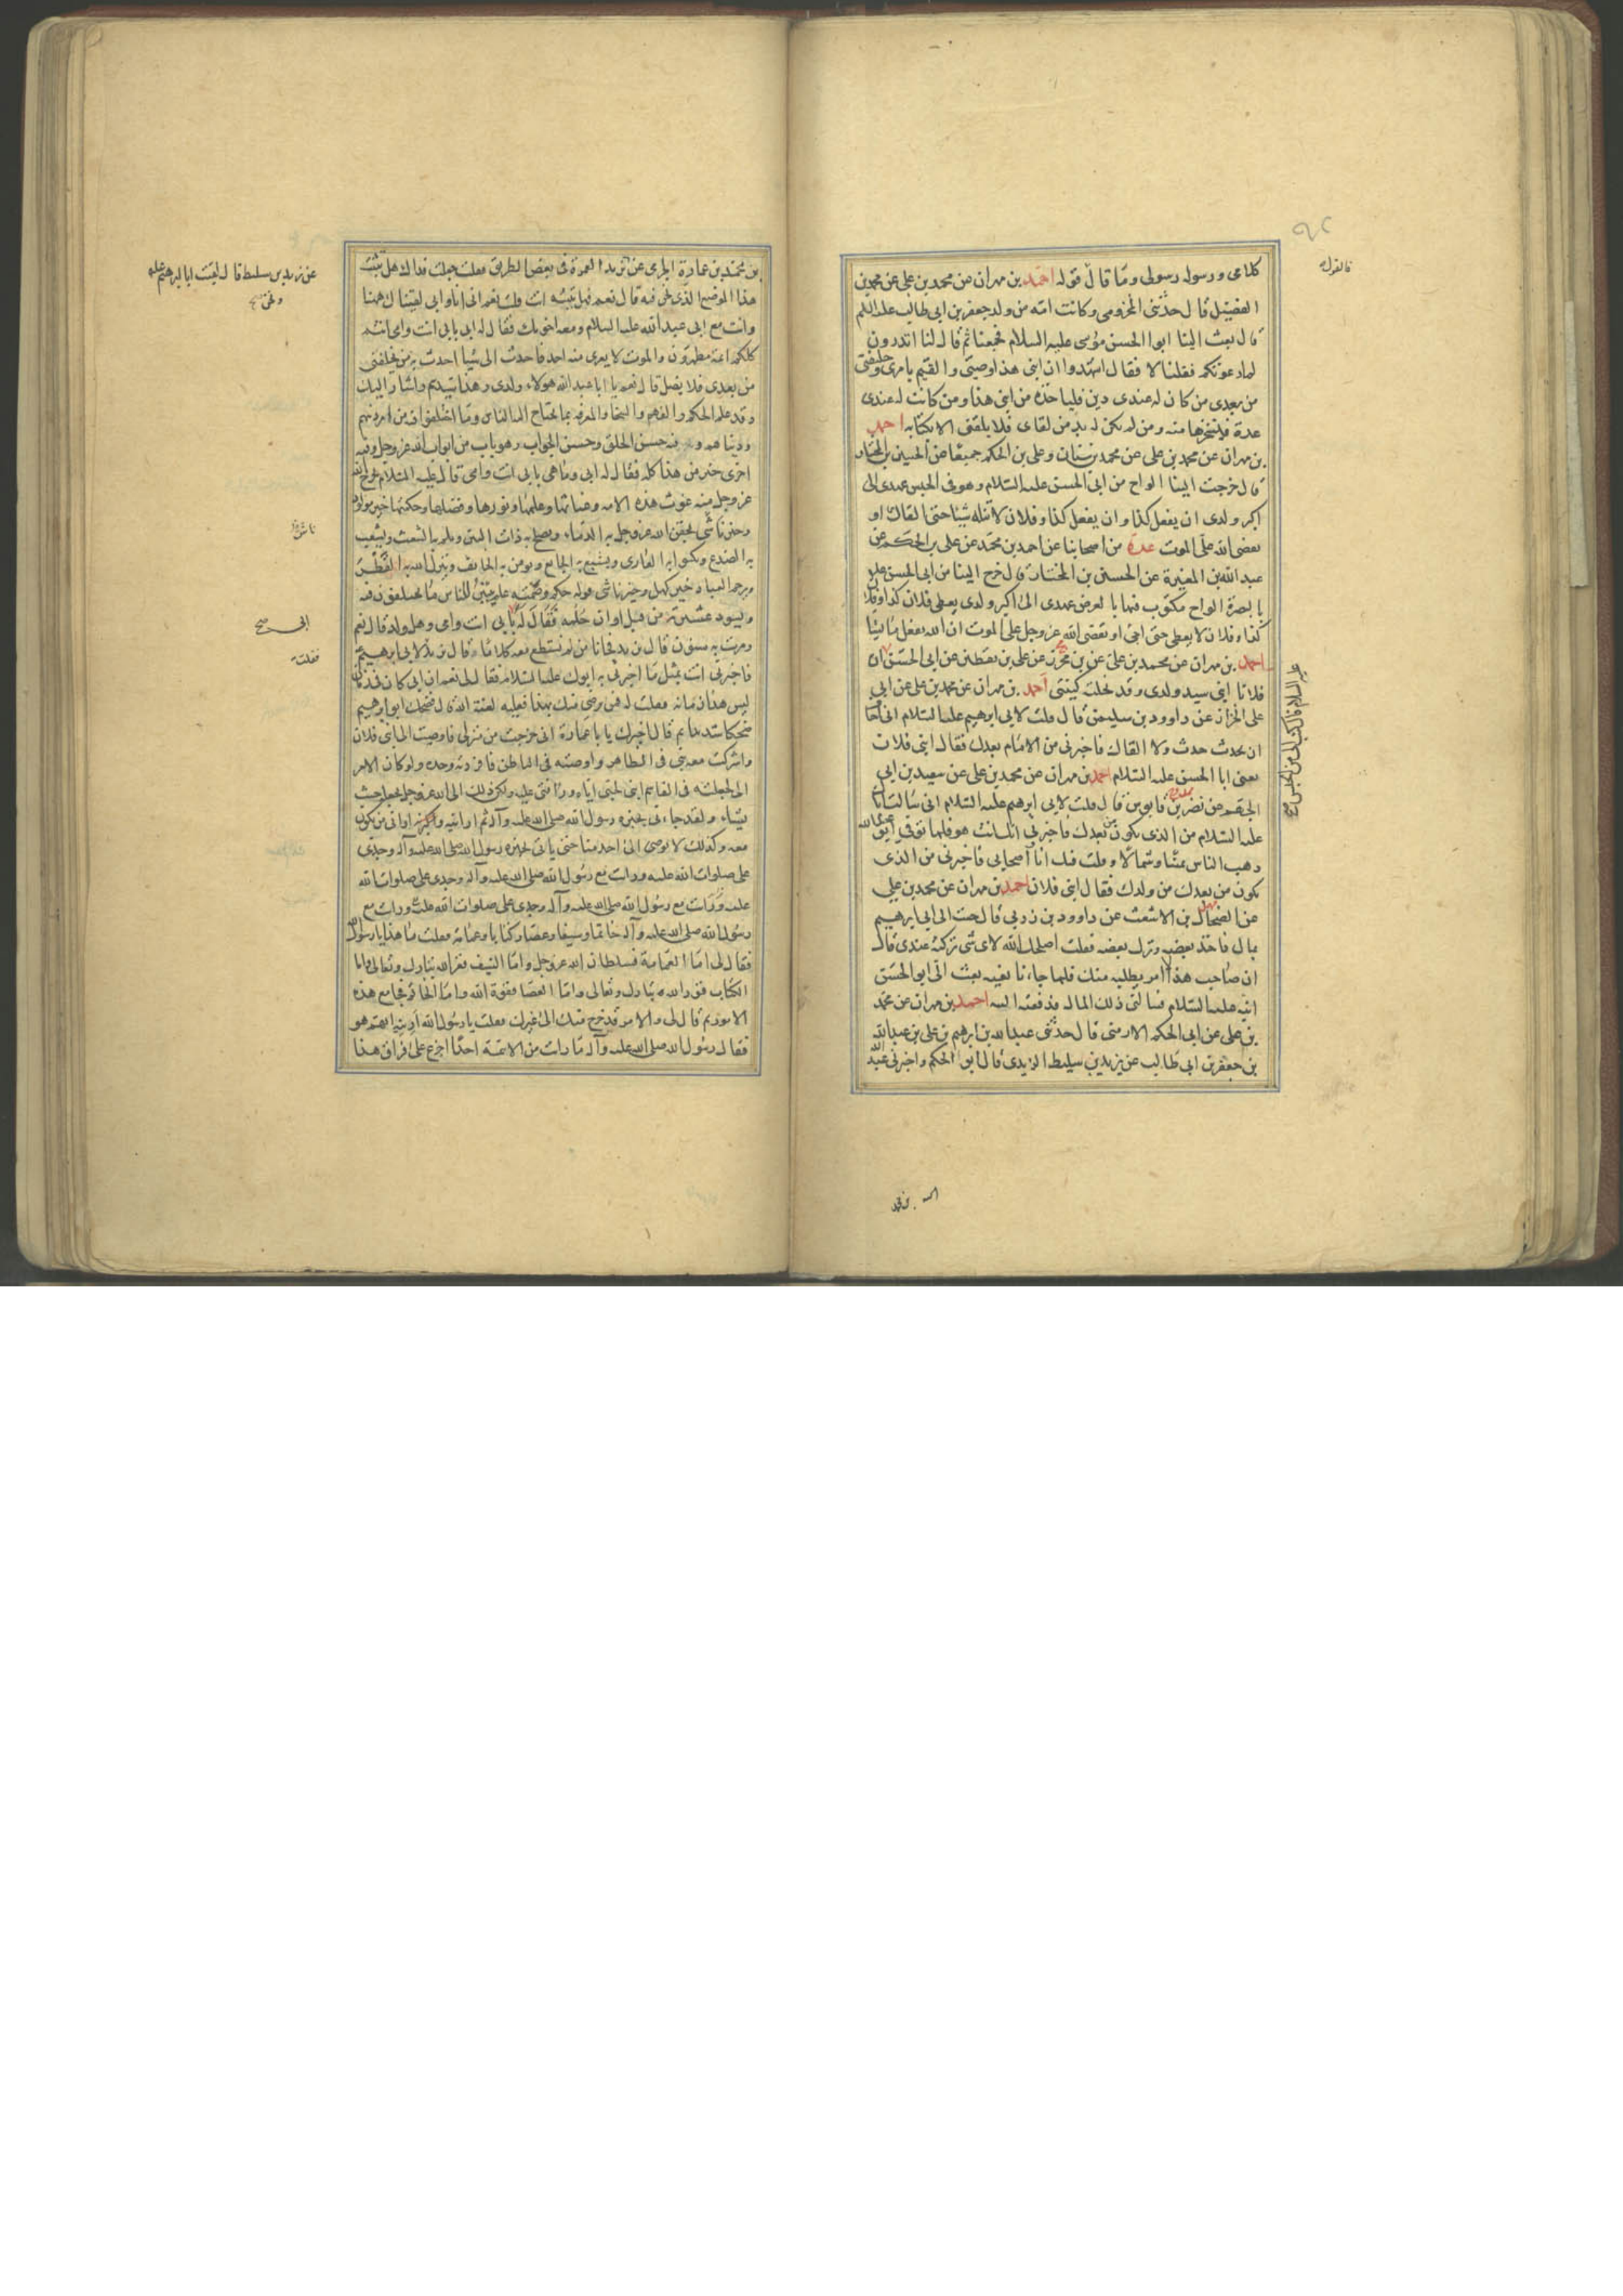 كلامى ورسوله رسولى وما قال قوله احمد بن مهران عن محمد بن على عن محمد بن
الفضيل قال حدثنى المخزومى وكانت امه من ولد جعفر بن ابى طالب عليه السلم
قال بعث الينا ابوالحسن موسى عليه السلام فجمعنا ثم قال لنا اتدرون
لم دعوتكم فقلنا لا فقال اشهدوا ان ابنى هذا وصيى والقيم بامرى وخليفتى
من بعدى من كان له عندى دين فلياخذه من ابنى هذا ومن كانت له عندى
عدة فلينجزها منه ومن لم يكن له بد من لقاى فلا يلقنى الا بكتابه احمد
بن مهران عن محمد بن على عن محمد بن سنان وعلى بن الحكم جميعا عن الحسين بن المختار
قال خرجت الينا الواح من ابى الحسن عليه السلام وهو فى الحبس عهدى الى
اكبر ولدى ان يفعل كذا وان يفعل كذا وفلان لا تنله شيئا حتى القاك او
يقضى الله على الموت عدة من اصحابنا عن احمد بن محمد عن على بن الحكم عن
عبد الله بن المغيرة عن الحسين بن المختار قال خرج الينا من ابى الحسن عليه
بالبصرة الواح مكتوب فيها بالعرض عهدى الى اكبر ولدى يعطى فلان كذا وفلان
كذا وفلان لا يعطى حتى اجئ او يقضى الله عز وجل على الموت ان الله يفعل ما يشا
احمد بن مهران عن محمد بن على عن بن محرز عن على بن يقطين عن ابى الحسن ان
فلانا ابنى سيد ولدى وقد نحلته كنيتى احمد بن مهران عن محمد بن على عن ابى
على الخزاز عن داوود بن سليمن قال قلت لابى ابرهيم عليه السلام انى اخاف
ان يحدث حدث ولا القاك فاخبرنى من الامام بعدك فقال ابنى فلان
يعنى ابا الحسن عليه السلام احمد بن مهران عن محمد بن على عن سعيد بن ابى
الجهم عن نصر بن قابوس قال قلت لابى ابرهيم عليه السلام انى سالت اباك
عليه السلام من الذى يكون من بعدك فاخبرنى انك انت هو فلما توفى ابو عبد الله
ذهب الناس يمينا وشمالا وقلت فيك انا واصحابى فاخبرنى من الذى
يكون من بعدك من ولدك فقال ابنى فلان احمد بن مهران عن محمد بن على
عن الضحاك بن الاشعث عن داوود بن زربى قال جئت الى ابى ابرهيم
بمال فاخذ بعضه وترك بعضه فقلت اصلحك الله لاى شى تركته عندى قال
ان صاحب هذا الامر يطلبه منك فلما جاءنا نعيه بعث الى ابوالحسن
ابنه عليه السلام فسالنى ذلك المال فدفعته اليه احمد بن مهران عن محمد
بن على عن ابى الحكم الارمنى قال حدثنى عبدالله بن ابرهيم بن على بن عبدالله
بن جعفر بن ابى طالب عن يزيد بن سليط الزيدى قال ابو الحكم واخبرنى عبد الله
بن محمد بن عمارة الجرمى عن يزيد العمرة فى بعض الطريق فقلت جعلت فداك هل تثبت
هذا الموضع الذى نحن فيه قال نعم فهل تثبته انت قلت نعم انى انا وابى لقيناك ههنا
وانت مع ابى عبدالله عليه السلام ومعه اخوتك فقال له ابى بابى انت وامى انتم
كلكم ائمة مطهرون والموت لا يعرى منه احد فاحدث الى شيا احدث به من يخلفنى
من بعدى فلا يضل قال نعم يا ابا عبدالله هولاء ولدى وهذا سيدهم واشار اليك
وقد علم الحكم والفهم والسخا والمعرفة بما يحتاج اليه الناس وما اختلفوا فيه من امر دينهم
ودنياهم وفيه حسن الخلق وحسن الجواب وهو باب من ابواب الله عز وجل وفيه
اخرى خير من هذا كله فقال له ابى وما هى بابى انت وامى قال عليه السلام يخرج الله
عز وجل منه غوث هذه الامه وغياثها وعلمها ونورها وفضلها وحكمتها خير مولود
وخير ناشى يحقن الله عز وجل به الدماء ويصلح به ذات البين ويلم به الشعث ويشعب
به الصدع ويكسو به العارى ويشبع به الجايع ويومن به الخايف وينزل الله به القطر
ويرحم العباد خير كهل وخير ناشى قوله حكم وصمته علم يبين للناس ما يختلفون فيه
ويسود عشيرته من قبل اوان حلمه فقال له بابى انت وامى وهل ولد قال نعم
ومرت به سنون قال يزيد فجانا من لم نستطع معه كلاما قال يزيد لابى ابرهيم
فاخبرنى انت بمثل ما اخبرنى به ابوك عليه السلام فقال لى نعم ان ابى كان فى زمان
ليس هذا زمانه فقلت له فمن يرضى منك بهذا فعليه لعنة الله قال فضحك ابو ابرهيم
ضحكا شديدا ثم قال اخبرك يا با عمارة انى خرجت من منزلى فاوصيت الى ابنى فلان
واشركت معه بنى فى الظاهر واوصيته فى الباطن فافردته وحده ولو كان الامر
الى لجعلته فى القاسم ابنى لحبى اياه ورافتى عليه ولكن ذلك الى الله عز وجل يجعله حيث
يشاء ولقد جاءنى بخبره رسول الله صلى الله عليه وآله ثم ارانيه وارانى من يكون
معه وكذلك لا يوصى الى احد منا حتى ياتى بخبره رسول الله صلى الله عليه وآله وجدى
على صلوات الله عليه ورايت مع رسول الله صلى الله عليه وآله وجدى على صلوات الله
عليه ورايت مع رسول الله صلى الله عليه وآله وجدى على صلوات الله عليه ورايت مع
رسول الله صلى الله عليه وآله خاتما وسيفا وعصا وكتابا وعمامة فقلت ما هذا يا رسول الله
فقال لى اما العمامة فسلطان الله عز وجل واما السيف فعز الله تبارك وتعالى واما
الكتاب فنور الله تبارك وتعالى واما العصا فقوة الله واما الخاتم فجامع هذه
الامور ثم قال لى والامر قد خرج منك الى غيرك فقلت يا رسول الله ارنيه ايهم هو
فقال رسول الله صلى الله عليه وآله ما رايت من الائمة احدا اجزع على فراق هذا
عن يزيد بن سليط قال لقيت ابا ابرهيم عليه
ونحن
ابى صح
فقلت